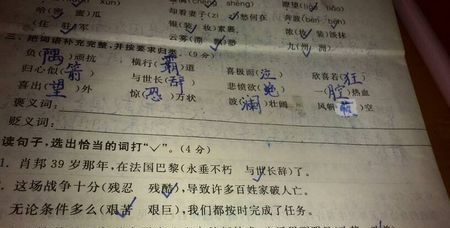 哈(蜜)瓜 却看妻子(愁何在
(住 驻)军 银(装 妆)素裹 浓(装)涂抹
云雾(漂)游 九(州 洲)
三、把词语补充完整,并按要求归类。(9分)
负(隅)顽抗 横行(霸)道 喜极而(泣) 欣喜若(狂)
归心似(箭) 与世长(辞) 悲愤欲(绝) 一(腔)热血
喜出(望)外 惊(恐)万状 波(澜)壮阔 风帆(蔽)空
褒义词:
贬义词:
读句子,选出恰当的词打“✓”。(4分)
1. 肖邦39岁那年,在法国巴黎(永垂不朽 与世长辞)了。
这场战争十分(残忍 残酷),导致许多百姓家破人亡。
无论条件多么(艰苦 艰巨),我们都按时完成了任务。